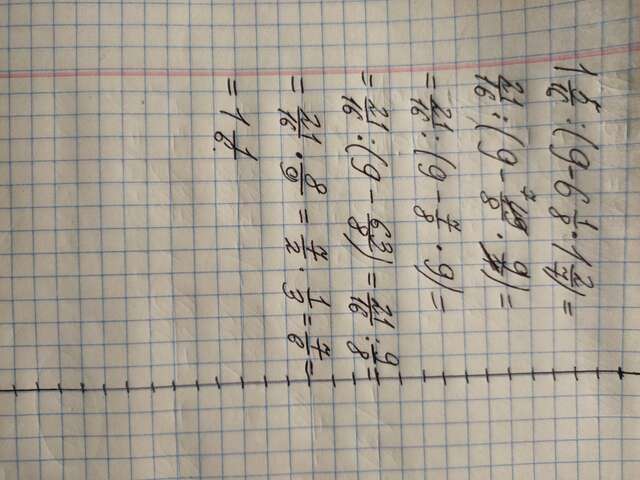 1 5/16 : (9 - 6 1/8 · 1 2/7) =
21/16 : (9 - 49/8 · 9/7) =
= 21/16 : (9 - 7/8 · 9) =
= 21/16 : (9 - 63/8) = 21/16 : 9/8 =
= 21/16 · 8/9 = 7/2 · 1/3 = 7/6 =
= 1 1/6.